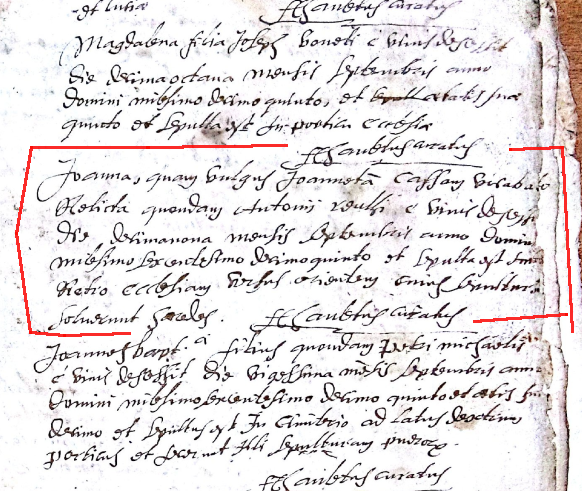 et lutia
curatus
Magdalena filia Joseph Boneti e vivis desessit
die decima octava mensis Septembris anno
Domini milesimo decimo quinto, et ætatis suæ
quinto et sepulta est in porticu ecclesiæ
curatus
Joanna, quam vulgus Joannetã vocabat
Relicta quondam Antonii e vivis desessit
die decimanona mensis Septembris anno Domini
milesimo sexcentesimo decimoquinto et sepulta est
Retro ecclesiam versus orientem cuius sepulturam
solverunt heredes. curatus
Joannes bapt.a filius quondam petri michaelis
e vivis desessit die vigessima mẽsis Septembris anno
Domini milesimo sexcentesimo decimo quinto et ætatis suæ
decimo et sepultus est In Cimiterio ad latus
porticus et illi sepulturam
curatus